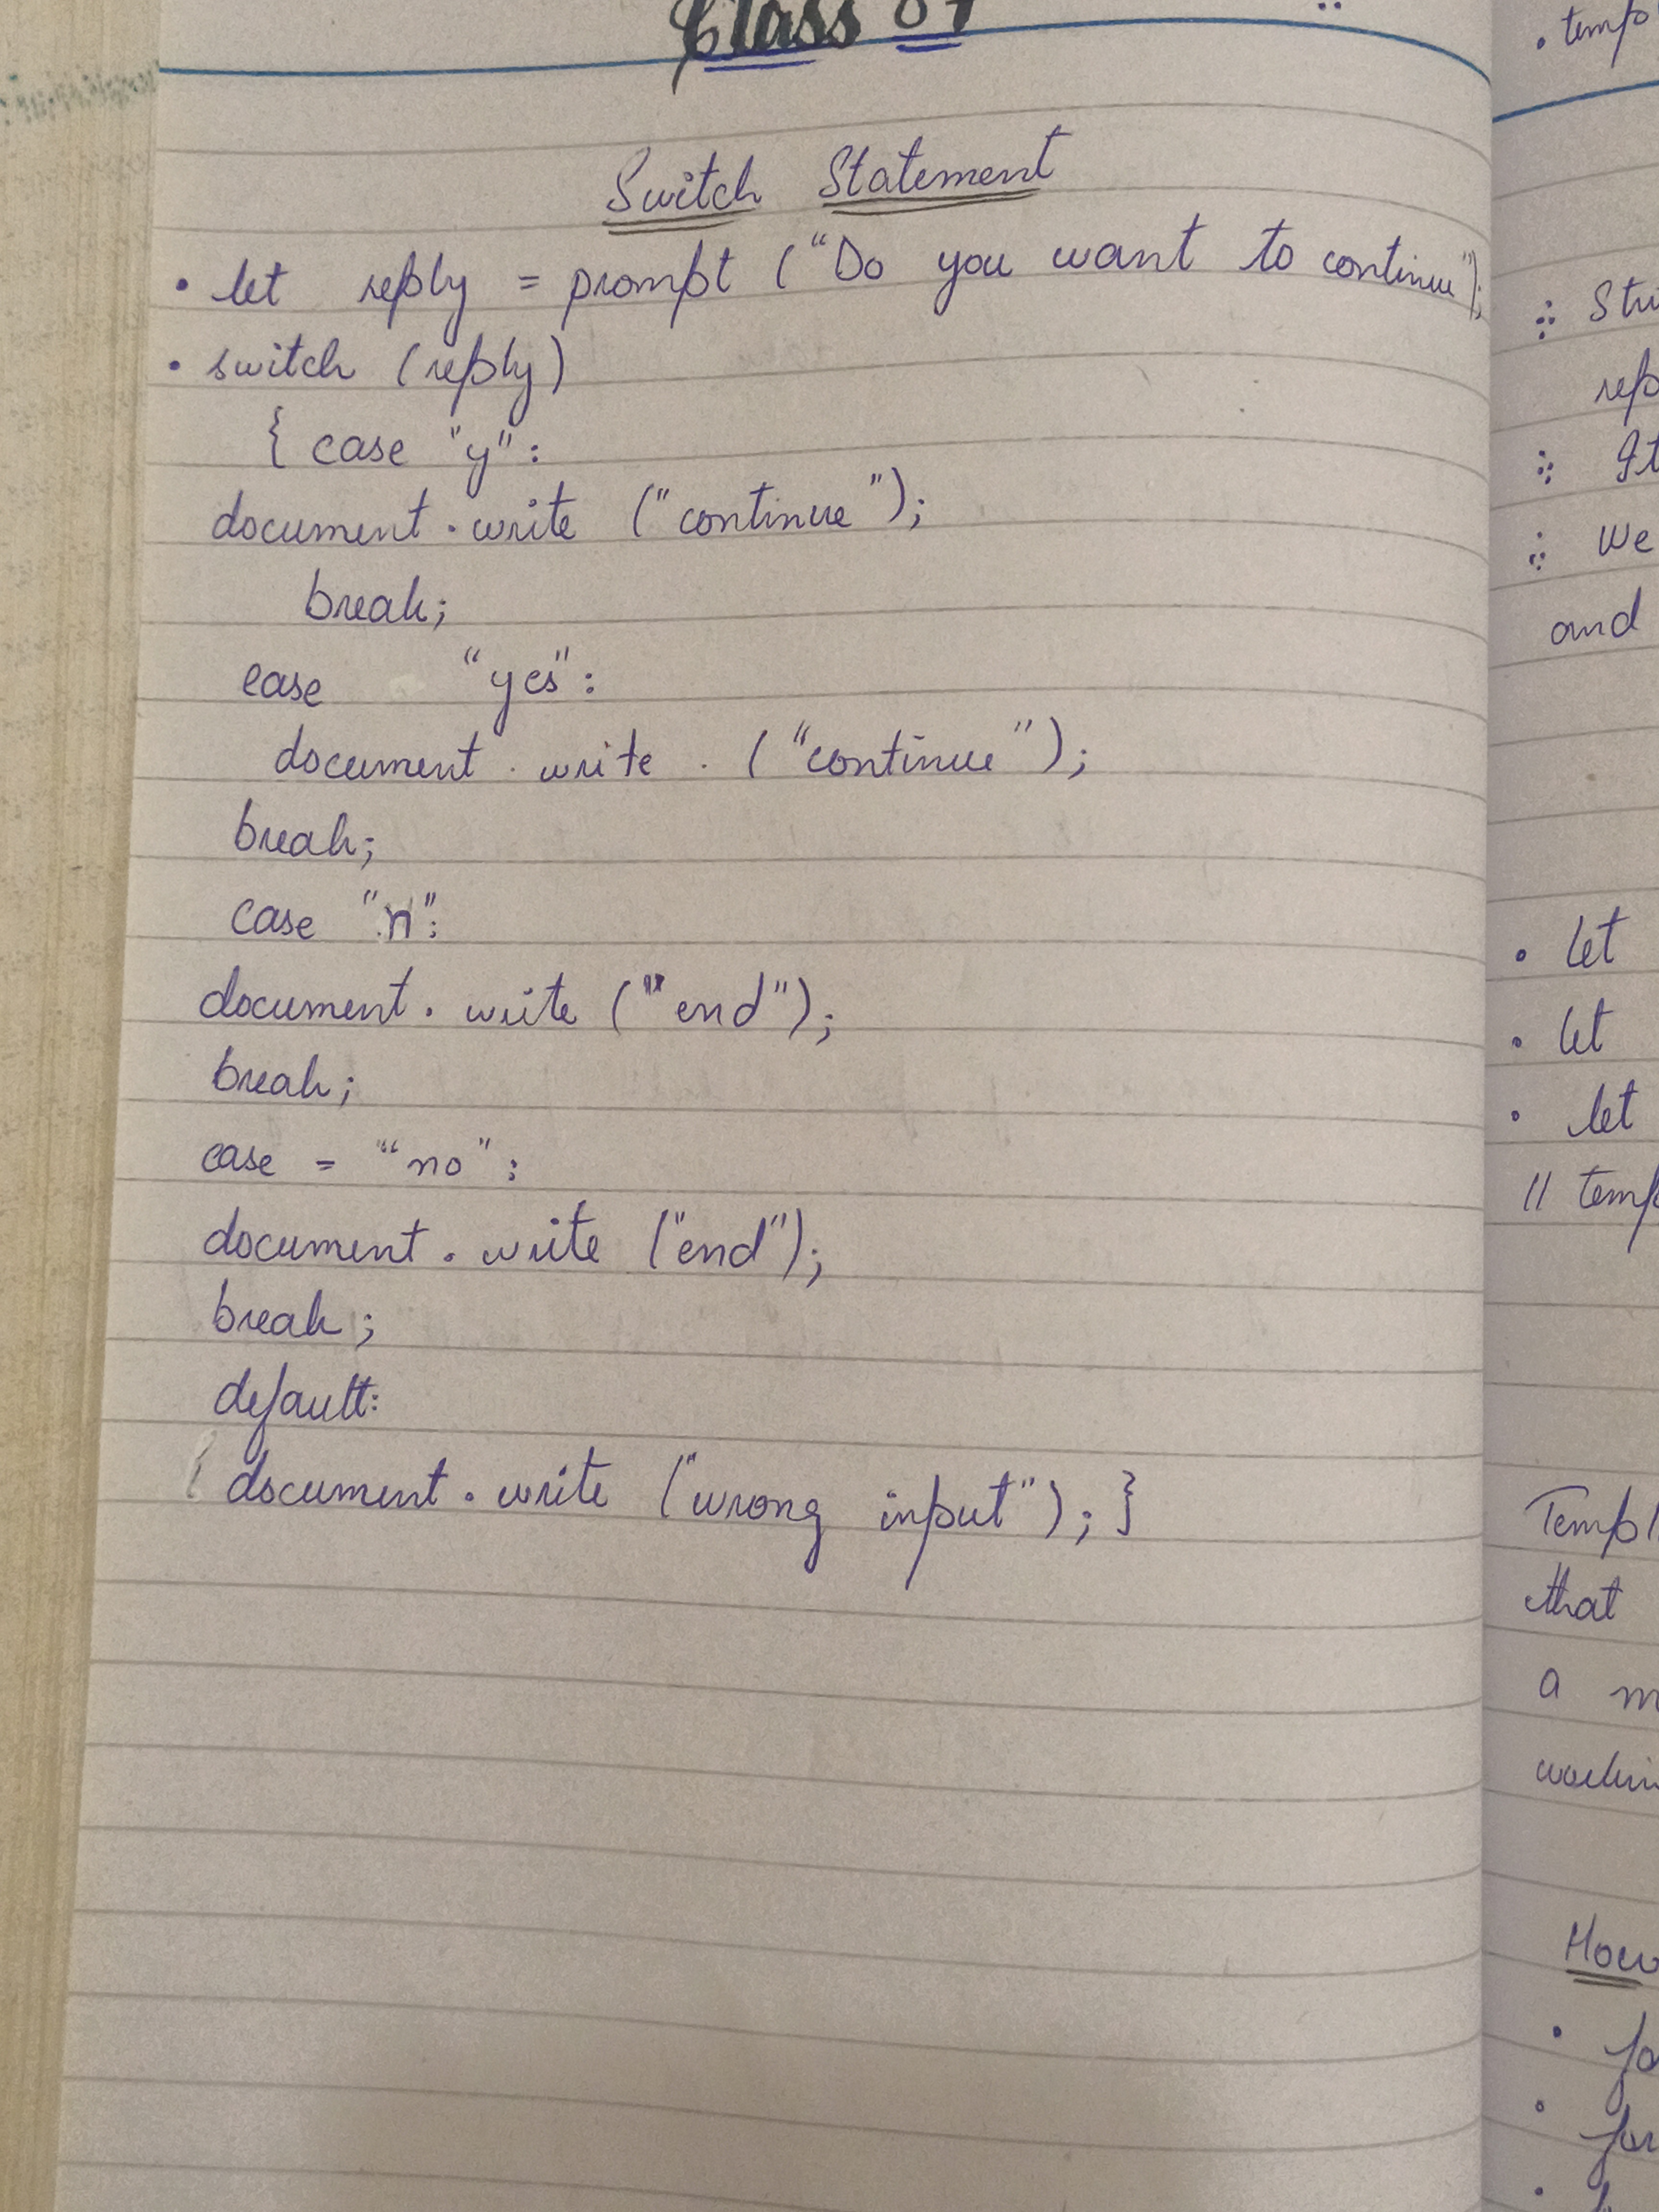 Class 07
Switch Statement
• let reply = prompt ("Do you want to continue");
• switch (reply)
{ case "y":
document.write ("continue");
break;
case "yes":
document.write.("continue");
break;
case "n":
document.write ("end");
break;
case = "no":
document.write ("end");
break;
default:
document.write ("wrong input"); }
• temp
∴ Stri
rep
∴ It
∴ We
and
• let
• let
• let
// temp
Templ
that
a m
workin
How
• fo
• for